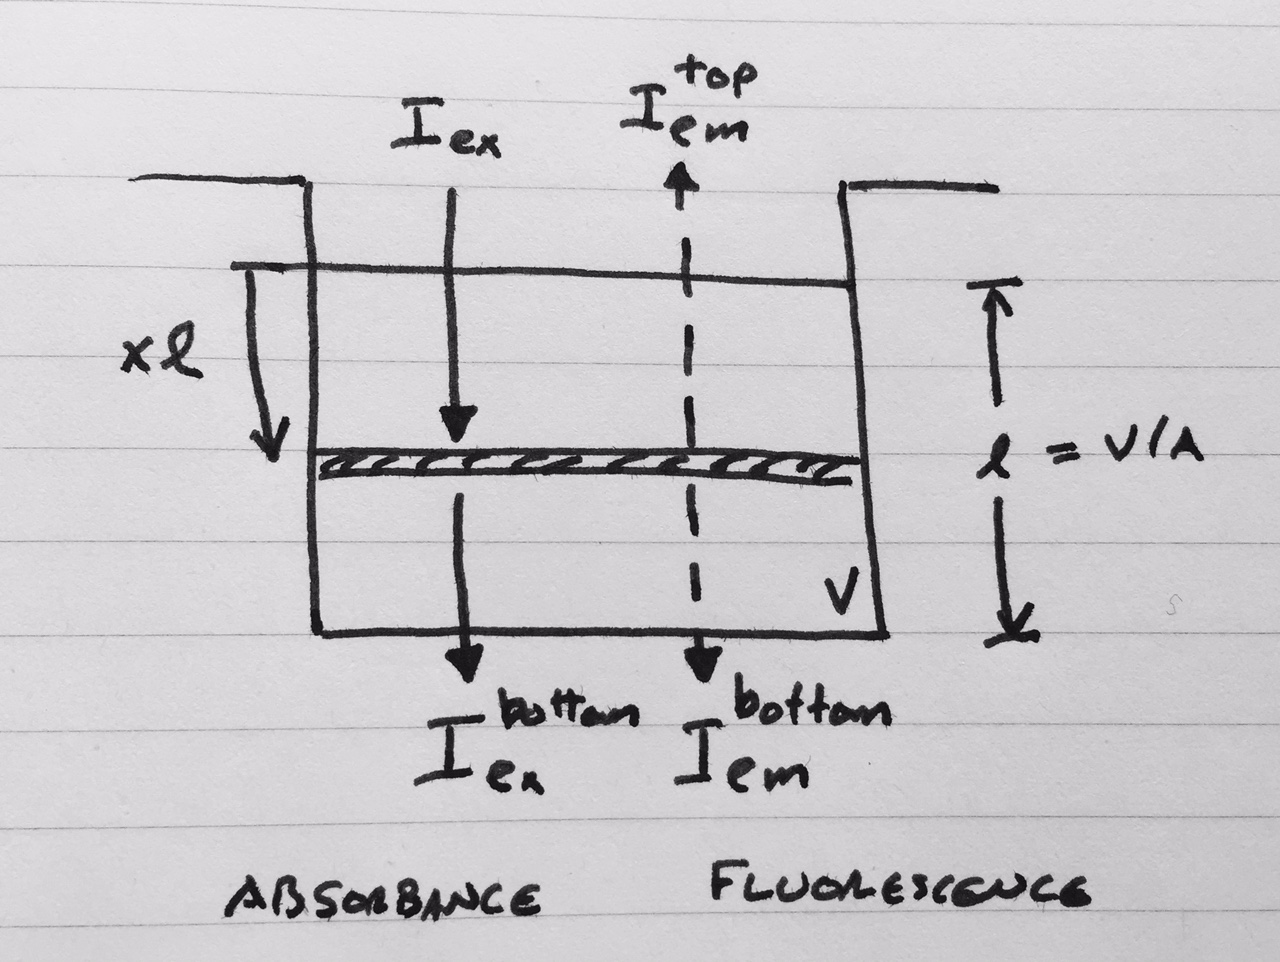 I_ex I_em^top
xl
l = V/A
V
I_ex^bottom I_em^bottom
ABSORBANCE FLUORESCENCE